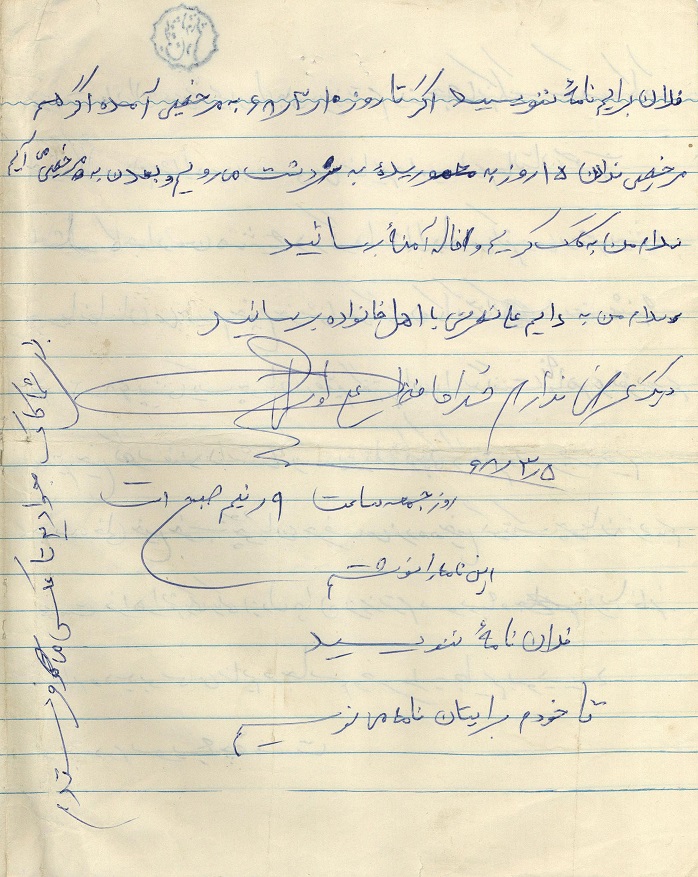 فلان برایم نامهٔ ننویسید اگر تا روز ۱۵ر۳ر۶۸ به مرخصی آمده اگر هم
مرخصی ندادن ۱۵ روز به مأموریت به سردشت می رویم و بعدن به مرخصی می آیم
سلام من به کاک کریم و خاله آمنهٔ برسانید
و سلام من به دایم علی با اهل خانواده برسانید
دیگر عرضی ندارم خداحافظ
۶۸ر۳ر۵
روز جمعه ساعت ۹ و نیم صبح است
این نامه را نوشتم
فلان نامهٔ ننویسید
تا خودم برایتان نامه می نویسم